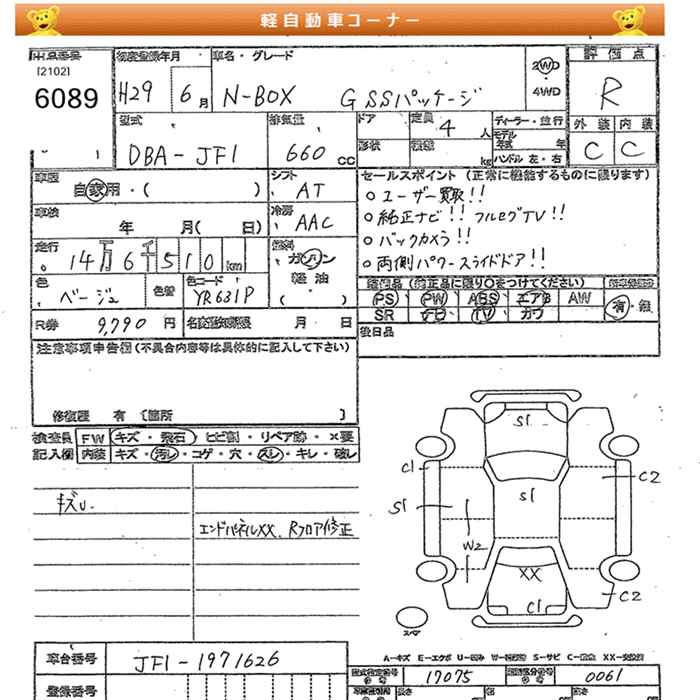 軽自動車コーナー
[2102]
6089
初度登録年月
H29 6月
車名・グレード
N-BOX GSSパッケージ
2WD
4WD
評価点
R
型式
DBA-JF1
排気量
660 CC
ドア
形状
定員
4人
kg
ディーラー・並行
モデル
年式 年
ハンドル 左・右
外装 内装
C C
車歴
自家用・( )
シフト
AT
セールスポイント (正常に機能するものに限ります)
○ユーザー買取!!
○純正ナビ!! フルセグTV!!
○バックカメラ!!
○両側パワースライドドア!!
車検
年 月( 日)
冷房
AAC
走行
14万6千510km
燃料
ガソリン
軽油
( )
色
ベージュ
色替
色コード
YR631P
PS PW ABS エアB AW
SR ナビ TV カワ
有・無
R券
9,790円
名変期限
月 日
後日品
注意事項申告欄(不具合内容等は具体的に記入して下さい)
修復歴 有 [箇所 ]
検査員
記入欄
FW キズ・飛石 ヒビ割・リペア跡・×要
内装 キズ・汚レ・コゲ・穴・スレ・キレ・破レ
キズU.
エンドパネルXX、Rフロア修正
S1
C1
C2
S1
S1
W2
XX
C1
C2
スペア
A-キズ E-エクボ U-凹み S-サビ XX-交換済
車台番号
JF1-1971626
17075
0061
登録番号